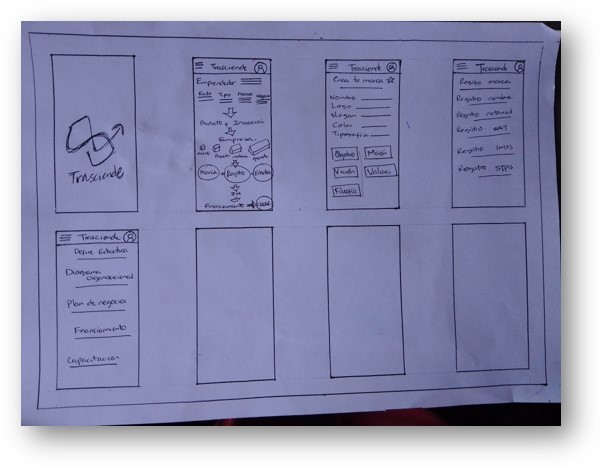 Trasciende
Trasciende
Emprendedor
Tipo
Producto + Innovación
Empresa
micro
grande
Marca
Registro
Financiamiento
Trasciende
Crea tu marca
Nombre
Logo
Slogan
Color
Tipografía
Objetivo
Misión
Visión
Valores
Filosofía
Trasciende
Registro marca
Registro nombre
Registro notarial
Registro SAT
Registro IMSS
Registro STPS
Trasciende
Define Estructura
Diagrama
organizacional
Plan de negocios
Financiamiento
Capacitación